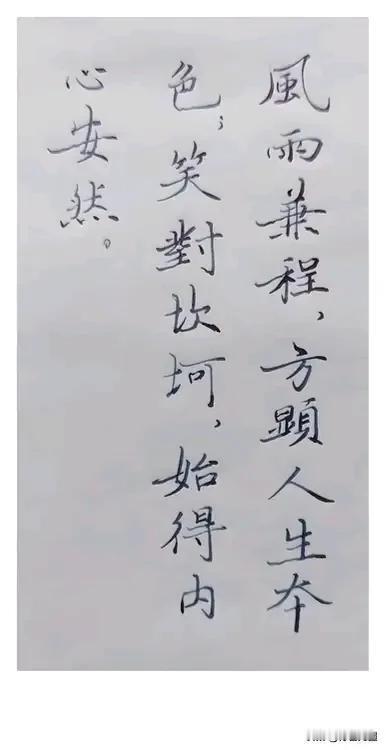 風雨兼程，方顕人生本
色；笑對坎坷，始得内
心安然。